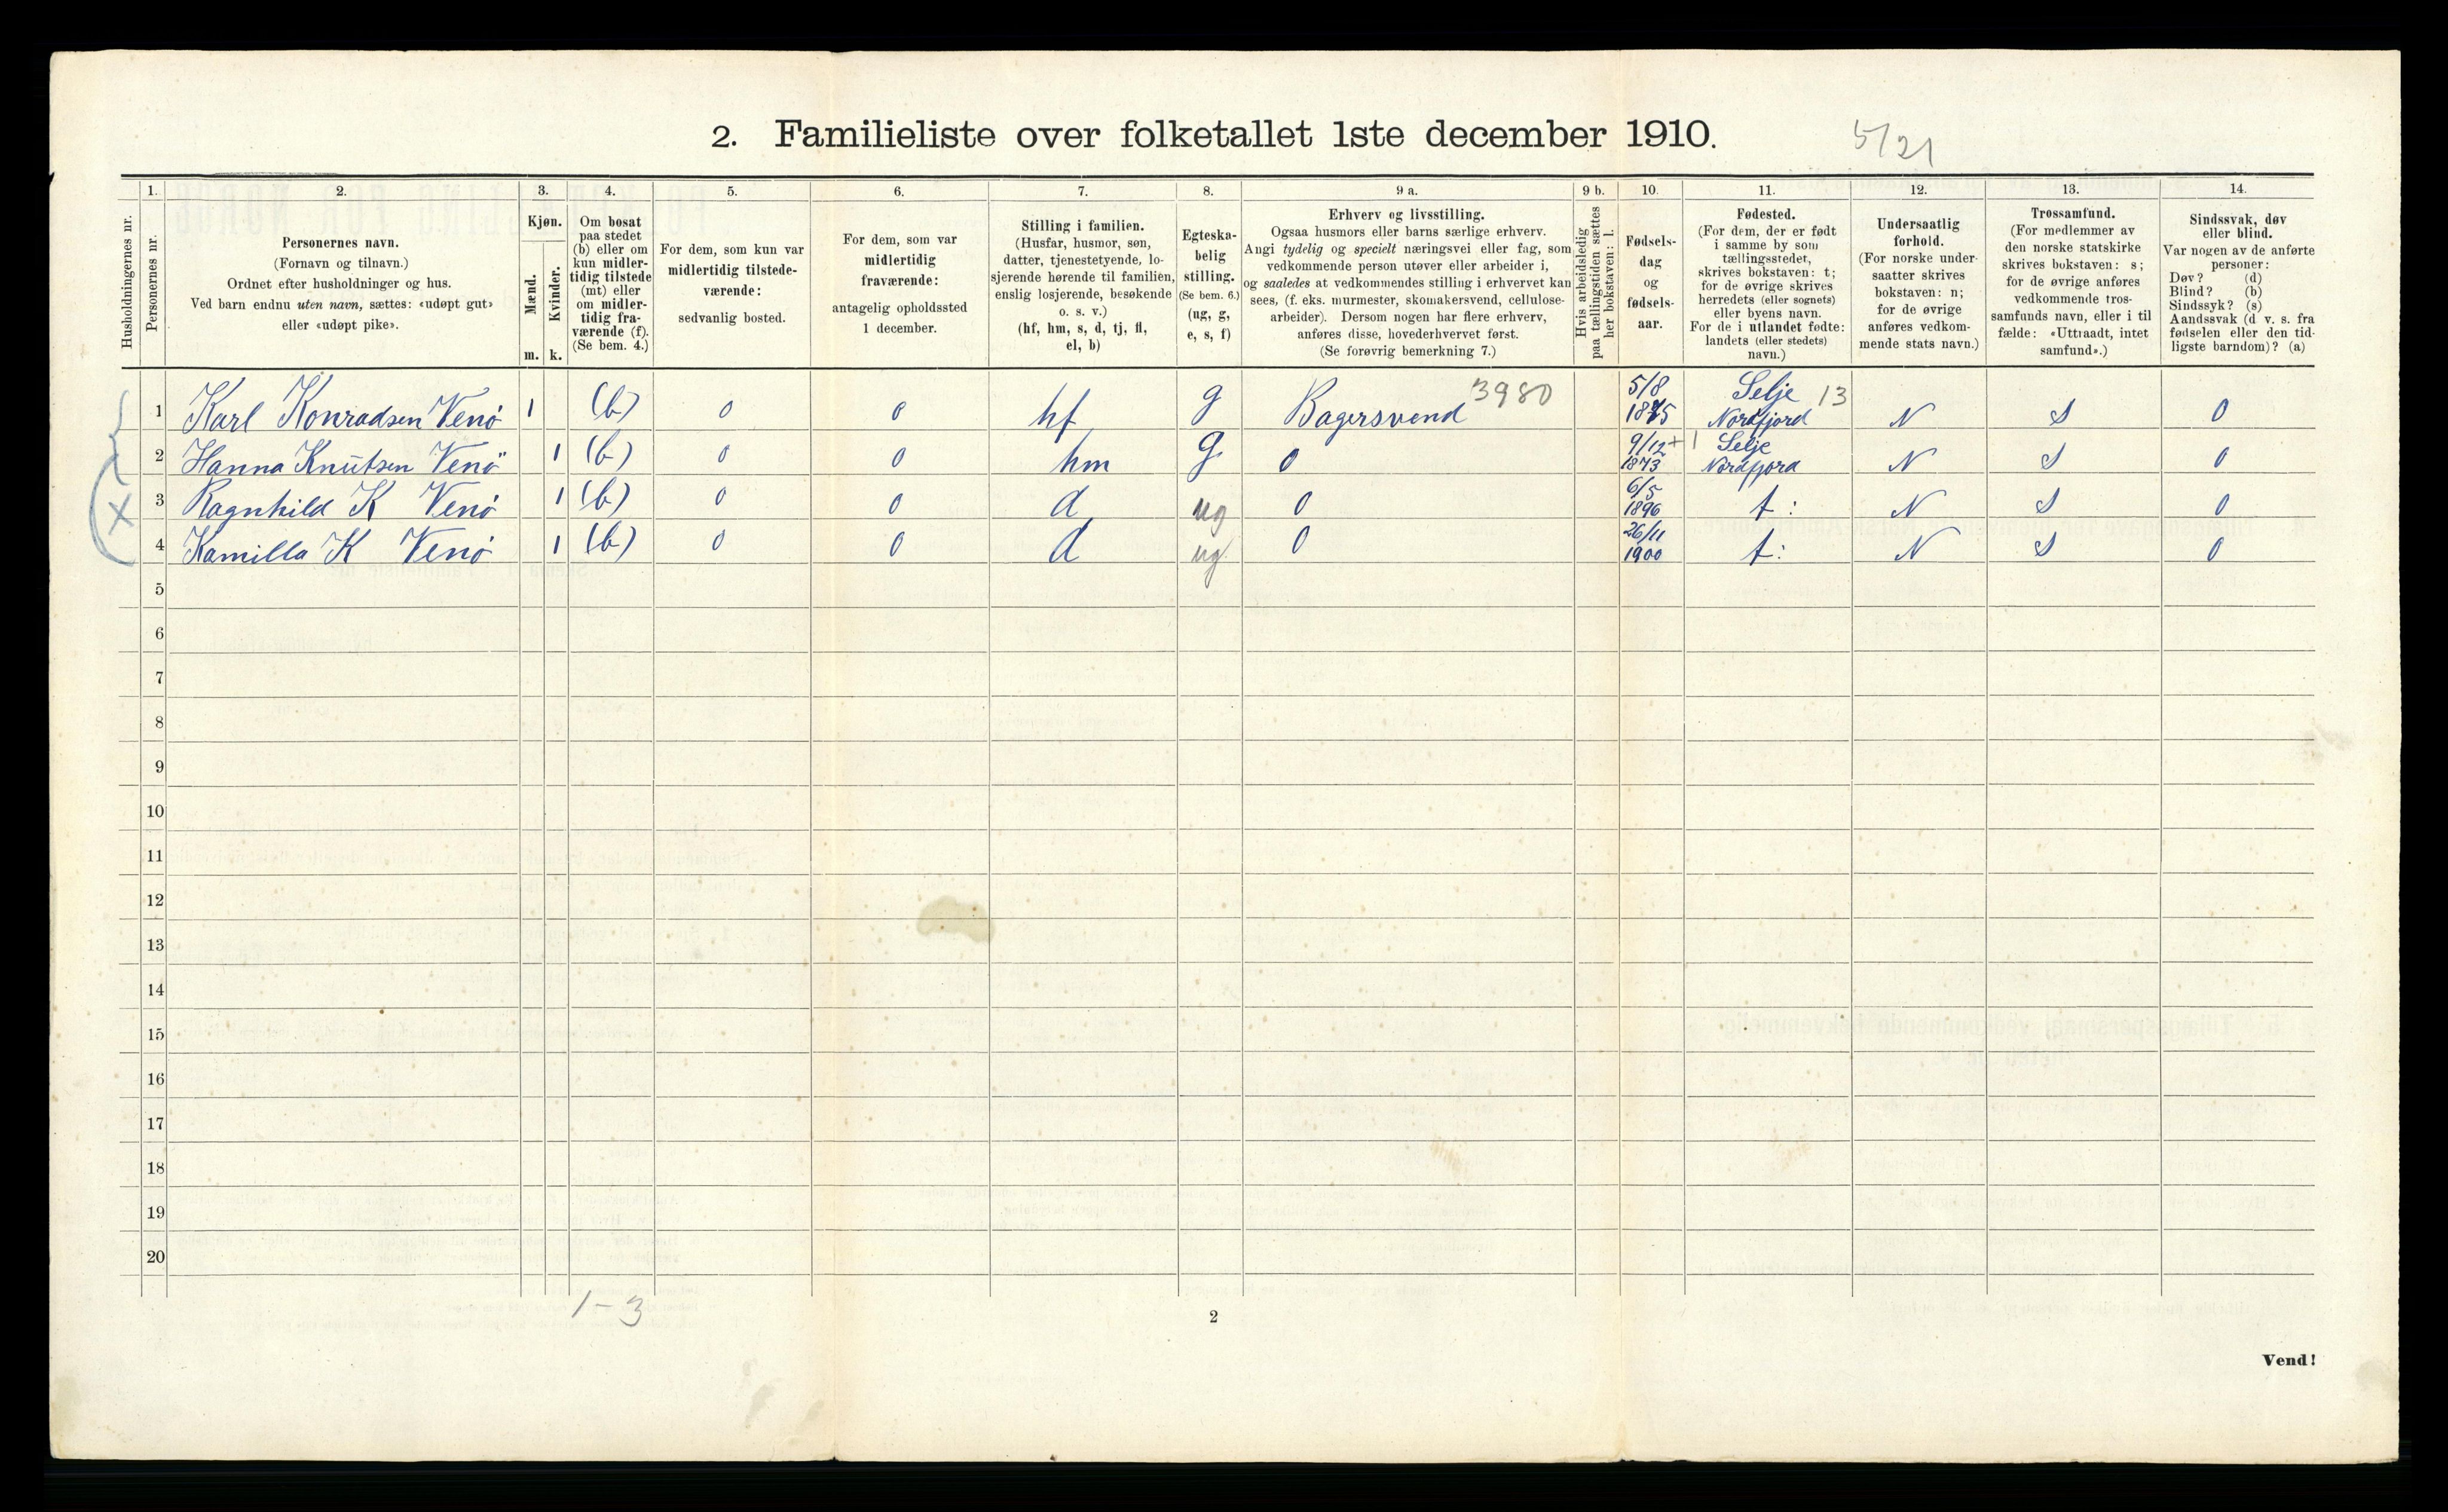 2. Familieliste over folketallet 1ste december 1910.
5/21
Husholdningernes nr.
1.
Personernes nr.
2.
Personernes navn.
(Fornavn og tilnavn.)
Ordnet efter husholdninger og hus.
Ved barn endnu uten navn, sættes: «udøpt gut»
eller «udøpt pike».
3.
Kjøn.
Mænd.
Kvinder.
m. k.
4.
Om bosat
paa stedet
(b) eller om
kun midler-
tidig tilstede
(mt) eller
om midler-
tidig fra-
værende (f).
(Se bem. 4.)
5.
For dem, som kun var
midlertidig tilstede-
værende:
sedvanlig bosted.
6.
For dem, som var
midlertidig
fraværende:
antagelig opholdssted
1 december.
7.
Stilling i familien.
(Husfar, husmor, søn,
datter, tjenestetyende, lo-
sjerende hørende til familien,
enslig losjerende, besøkende
o. s. v.)
(hf, hm, s, d, tj, fl,
el, b)
8.
Egteska-
belig
stilling.
(Se bem. 6.)
(ug, g,
e, s, f)
9 a.
Erhverv og livsstilling.
Ogsaa husmors eller barns særlige erhverv.
Angi tydelig og specielt næringsvei eller fag, som
vedkommende person utøver eller arbeider i,
og saaledes at vedkommendes stilling i erhvervet kan
sees, (f. eks. murmester, skomakersvend, cellulose-
arbeider). Dersom nogen har flere erhverv,
anføres disse, hovederhvervet først.
(Se forøvrig bemerkning 7.)
9 b.
Hvis arbeidsledig
paa tællingstiden sættes
her bokstaven: l.
10.
Fødsels-
dag
og
fødsels-
aar.
11.
Fødested.
(For dem, der er født
i samme by som
tællingsstedet,
skrives bokstaven: t;
for de øvrige skrives
herredets (eller sognets)
eller byens navn.
For de i utlandet fødte:
landets (eller stedets)
navn.)
12.
Undersaatlig
forhold.
(For norske under-
saatter skrives
bokstaven: n;
for de øvrige
anføres vedkom-
mende stats navn.)
13.
Trossamfund.
(For medlemmer av
den norske statskirke
skrives bokstaven: s;
for de øvrige anføres
vedkommende tros-
samfunds navn, eller i til
fælde: «Uttraadt, intet
samfund».)
14.
Sindssvak, døv
eller blind.
Var nogen av de anførte
personer:
Døv? (d)
Blind? (b)
Sindssyk? (s)
Aandssvak (d v. s. fra
fødselen eller den tid-
ligste barndom)? (a)
1 Karl Konradsen Venö 1 (b) 0 0 hf g Bagersvend 3980 5/8 1875 Selje 13 Nordfjord N S 0
2 Hanna Knutsen Venö 1 (b) 0 0 hm g 0 9/12 + 1 1873 Selje Nordfjord N S 0
3 Ragnhild K Venö 1 (b) 0 0 d ug 0 6/5 1896 t: N S 0
4 Kamilla K Venö 1 (b) 0 0 d ug 0 26/11 1900 t: N S 0
x
5
6
7
8
9
10
11
12
13
14
15
16
17
18
19
20
1-3
2
Vend!